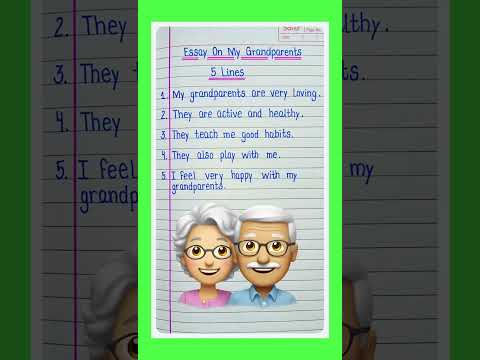 Essay On My Grandparents
5 Lines
1. My grandparents are very loving.
2. They are active and healthy.
3. They teach me good habits.
4. They also play with me.
5. I feel very happy with my
grandparents.
2. They
3. They
4. They
5. I feel
grandpa
lthy.
ts.
my